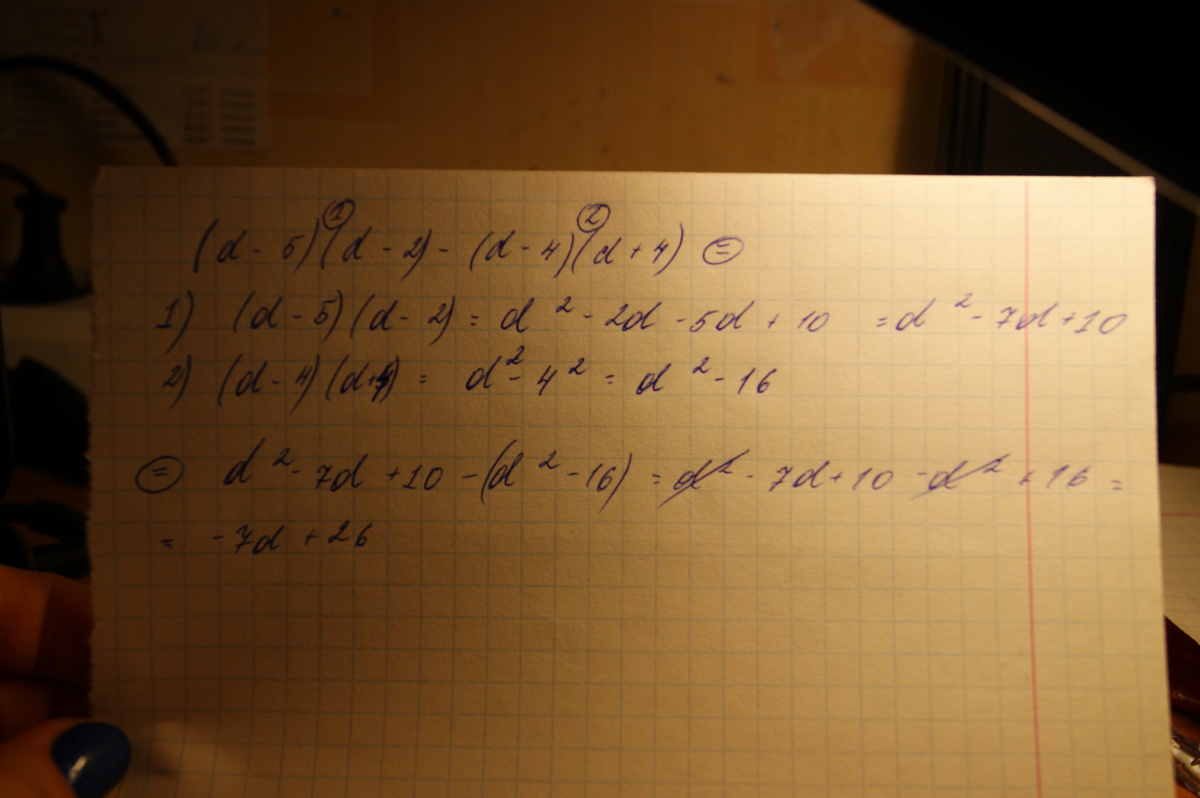 (d - 5)①(d - 2) - (d - 4)②(d + 4) ⊜
1) (d - 5)(d - 2) = d² - 2d - 5d + 10 = d² - 7d + 10
2) (d - 4)(d+4) = d² - 4² = d² - 16
⊜ d² - 7d + 10 - (d² - 16) = d² - 7d + 10 - d² + 16 =
= -7d + 26